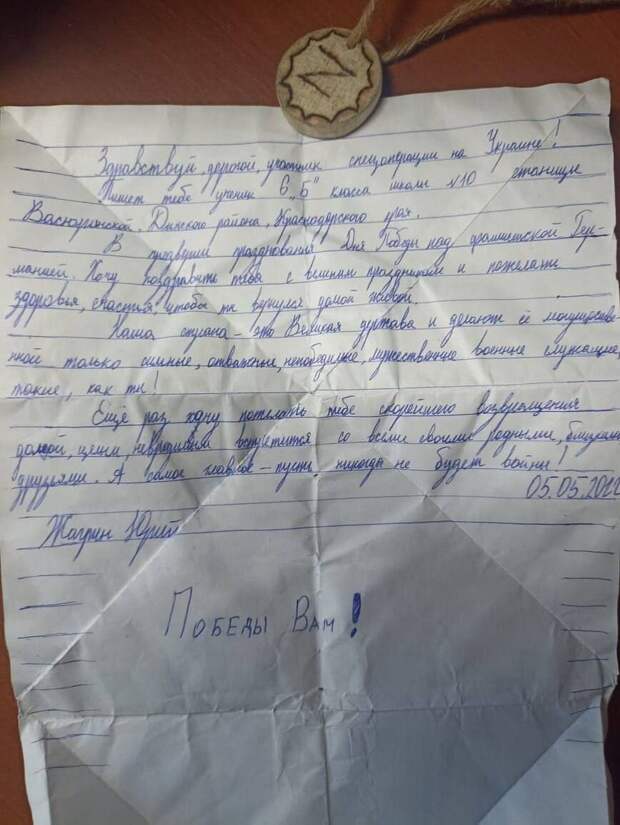 N
Здравствуй дорогой, участник спецоперации на Украине!
Пишет тебе ученик 6 „Б" класса школы №10 станицы
Васюринской, Динского района, Краснодарского края.
В преддверии празднования Дня Победы над фашистской Гер-
манией. Хочу поздравить тебя с великим праздником и пожелать
здоровья, счастья, чтобы ты вернулся домой живой.
Наша страна - это Великая держава и делают её могуществе-
нной только сильные, отважные, непобедимые, мужественные военные служащие,
такие, как ты!
Ещё раз хочу пожелать тебе скорейшего возвращения
домой, целым невредимым встретится со всеми своими родными, близкими
друзьями. А самое главное - пусть никогда не будет войны!
05.05.2022
Юрий
Победы Вам!